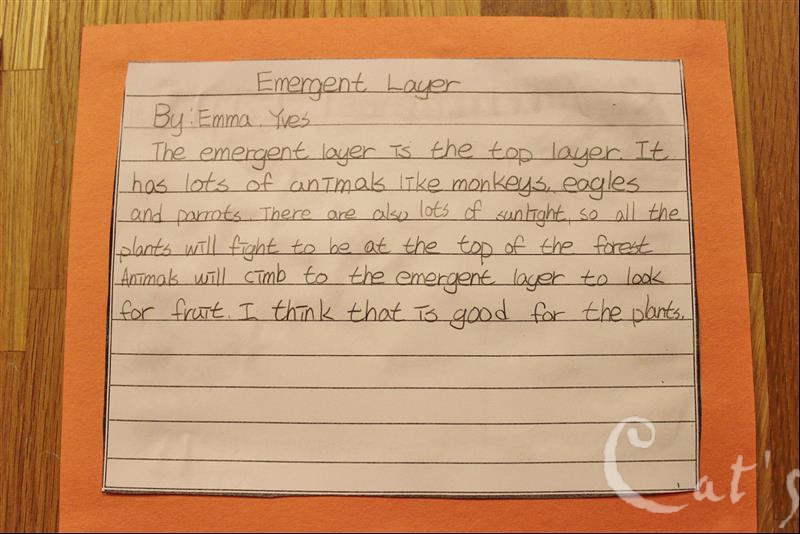 Emergent Layer
By: Emma. Yves
The emergent layer is the top layer. It
has lots of animals like monkeys, eagles
and parrots. There are also lots of sunlight, so all the
plants will fight to be at the top of the forest
Animals will climb to the emergent layer to look
for fruit. I think that is good for the plants.
Cat's